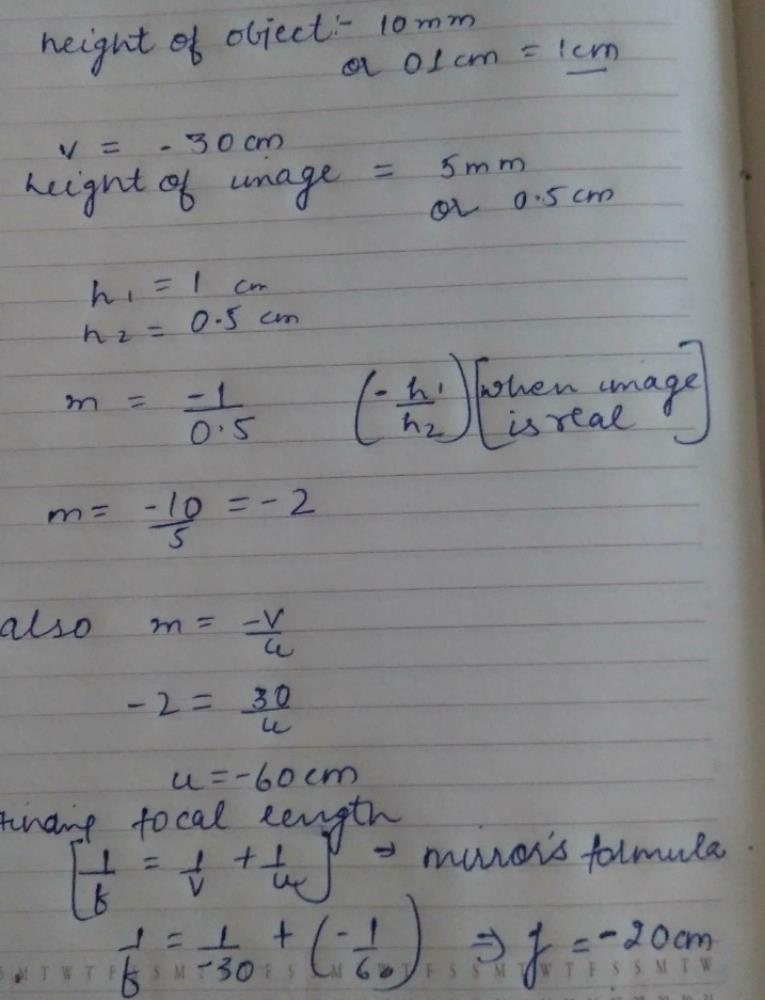 height of object:- 10mm
or 01cm = 1cm
v = -30cm
height of image = 5mm
or 0.5cm
h1 = 1 cm
h2 = 0.5 cm
m = -1/0.5 (-h1/h2) [when image is real]
m = -10/5 = -2
also m = -v/u
-2 = 30/u
u = -60cm
finding focal length
[1/f = 1/v + 1/u] → mirror's formula
1/f = 1/-30 + (-1/60) ⇒ f = -20cm
S M T W T F S S M T W T F S S M T W T F S S M T W T F S S M T W